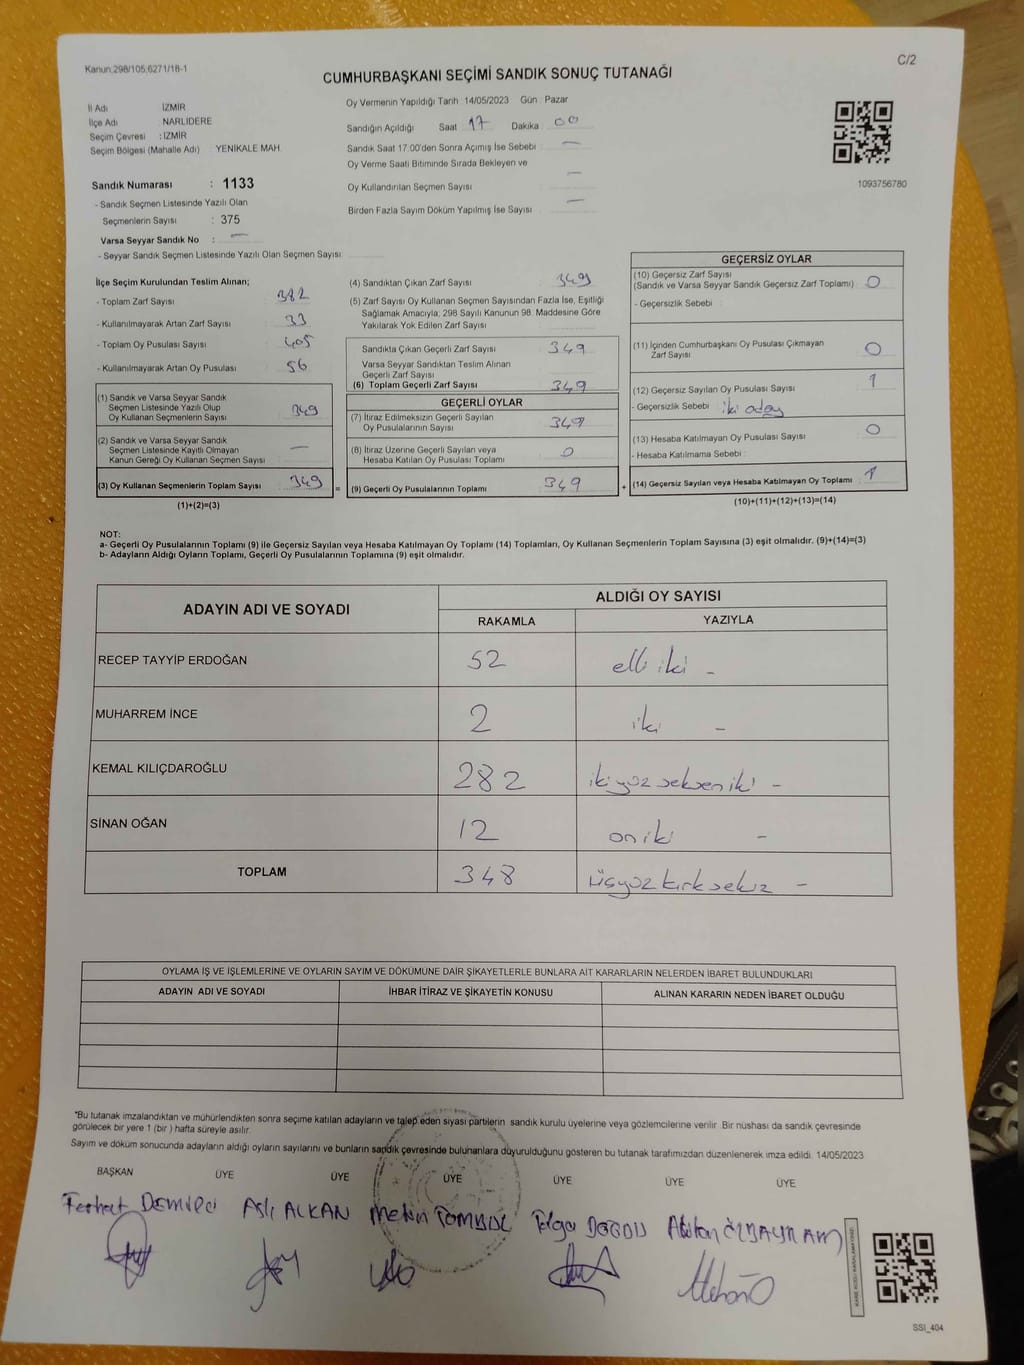 Kanun:298/105,6271/18-1
C/2
CUMHURBAŞKANI SEÇİMİ SANDIK SONUÇ TUTANAĞI
İl Adı İZMİR
İlçe Adı NARLIDERE
Seçim Çevresi : İZMİR
Seçim Bölgesi (Mahalle Adı) YENİKALE MAH.
Sandık Numarası : 1133
- Sandık Seçmen Listesinde Yazılı Olan
Seçmenlerin Sayısı : 375
Varsa Seyyar Sandık No : —
- Seyyar Sandık Seçmen Listesinde Yazılı Olan Seçmen Sayısı
Oy Vermenin Yapıldığı Tarih 14/05/2023 Gün : Pazar
Sandığın Açıldığı Saat 17 Dakika 00
Sandık Saat 17:00'den Sonra Açılmış İse Sebebi —
Oy Verme Saati Bitiminde Sırada Bekleyen ve
Oy Kullandırılan Seçmen Sayısı —
Birden Fazla Sayım Döküm Yapılmış İse Sayısı —
1093756780
İlçe Seçim Kurulundan Teslim Alınan;
- Toplam Zarf Sayısı 382
- Kullanılmayarak Artan Zarf Sayısı 33
- Toplam Oy Pusulası Sayısı 405
- Kullanılmayarak Artan Oy Pusulası 56
(1) Sandık ve Varsa Seyyar Sandık
Seçmen Listesinde Yazılı Olup
Oy Kullanan Seçmenlerin Sayısı 349
(2) Sandık ve Varsa Seyyar Sandık
Seçmen Listesinde Kayıtlı Olmayan
Kanun Gereği Oy Kullanan Seçmen Sayısı —
(3) Oy Kullanan Seçmenlerin Toplam Sayısı 349
(1)+(2)=(3)
(4) Sandıktan Çıkan Zarf Sayısı 349
(5) Zarf Sayısı Oy Kullanan Seçmen Sayısından Fazla İse, Eşitliği
Sağlamak Amacıyla; 298 Sayılı Kanunun 98. Maddesine Göre
Yakılarak Yok Edilen Zarf Sayısı
Sandıkta Çıkan Geçerli Zarf Sayısı 349
Varsa Seyyar Sandıktan Teslim Alınan
Geçerli Zarf Sayısı
(6) Toplam Geçerli Zarf Sayısı 349
GEÇERLİ OYLAR
(7) İtiraz Edilmeksizin Geçerli Sayılan
Oy Pusulalarının Sayısı 349
(8) İtiraz Üzerine Geçerli Sayılan veya
Hesaba Katılan Oy Pusulası Toplamı 0
= (9) Geçerli Oy Pusulalarının Toplamı 349
GEÇERSİZ OYLAR
(10) Geçersiz Zarf Sayısı
(Sandık ve Varsa Seyyar Sandık Geçersiz Zarf Toplamı) 0
- Geçersizlik Sebebi
(11) İçinden Cumhurbaşkanı Oy Pusulası Çıkmayan
Zarf Sayısı 0
(12) Geçersiz Sayılan Oy Pusulası Sayısı 1
- Geçersizlik Sebebi iki aday
(13) Hesaba Katılmayan Oy Pusulası Sayısı 0
- Hesaba Katılmama Sebebi
+ (14) Geçersiz Sayılan veya Hesaba Katılmayan Oy Toplamı 1
(10)+(11)+(12)+(13)=(14)
NOT:
a- Geçerli Oy Pusulalarının Toplamı (9) ile Geçersiz Sayılan veya Hesaba Katılmayan Oy Toplamı (14) Toplamları, Oy Kullanan Seçmenlerin Toplam Sayısına (3) eşit olmalıdır. (9)+(14)=(3)
b- Adayların Aldığı Oyların Toplamı, Geçerli Oy Pusulalarının Toplamına (9) eşit olmalıdır.
ADAYIN ADI VE SOYADI ALDIĞI OY SAYISI
RAKAMLA YAZIYLA
RECEP TAYYİP ERDOĞAN 52 elli iki -
MUHARREM İNCE 2 iki -
KEMAL KILIÇDAROĞLU 282 ikiyüzseksen iki -
SİNAN OĞAN 12 on iki -
TOPLAM 348 üçyüzkırksekiz -
OYLAMA İŞ VE İŞLEMLERİNE VE OYLARIN SAYIM VE DÖKÜMÜNE DAİR ŞİKAYETLERLE BUNLARA AİT KARARLARIN NELERDEN İBARET BULUNDUKLARI
ADAYIN ADI VE SOYADI İHBAR İTİRAZ VE ŞİKAYETİN KONUSU ALINAN KARARIN NEDEN İBARET OLDUĞU
"Bu tutanak imzalandıktan ve mühürlendikten sonra seçime katılan adayların ve talep eden siyasi partilerin sandık kurulu üyelerine veya gözlemcilerine verilir. Bir nüshası da sandık çevresinde
görülecek bir yere 1 (bir ) hafta süreyle asılır.
Sayım ve döküm sonucunda adayların aldığı oyların sayılarını ve bunların sandık çevresinde bulunanlara duyurulduğunu gösteren bu tutanak tarafımızdan düzenlenerek imza edildi. 14/05/2023
BAŞKAN ÜYE ÜYE ÜYE ÜYE ÜYE ÜYE
Ferhat DEMİRCİ Aslı ALKAN Metin TOMBUL Tolga DOĞDU ÖZBAYRAM
SSİ_404